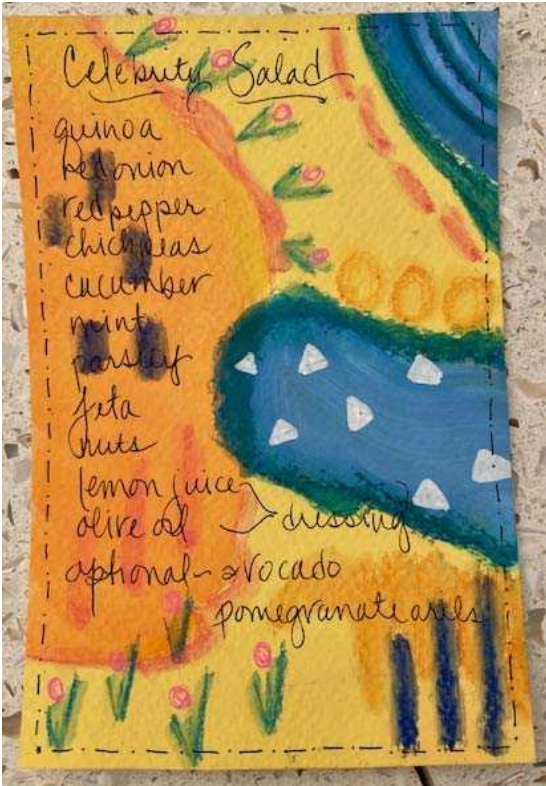 Celebrity Salad
quinoa
red onion
red pepper
chickpeas
cucumber
mint
parsley
feta
nuts
lemon juice
olive oil > dressing
optional - avocado
pomegranate arils